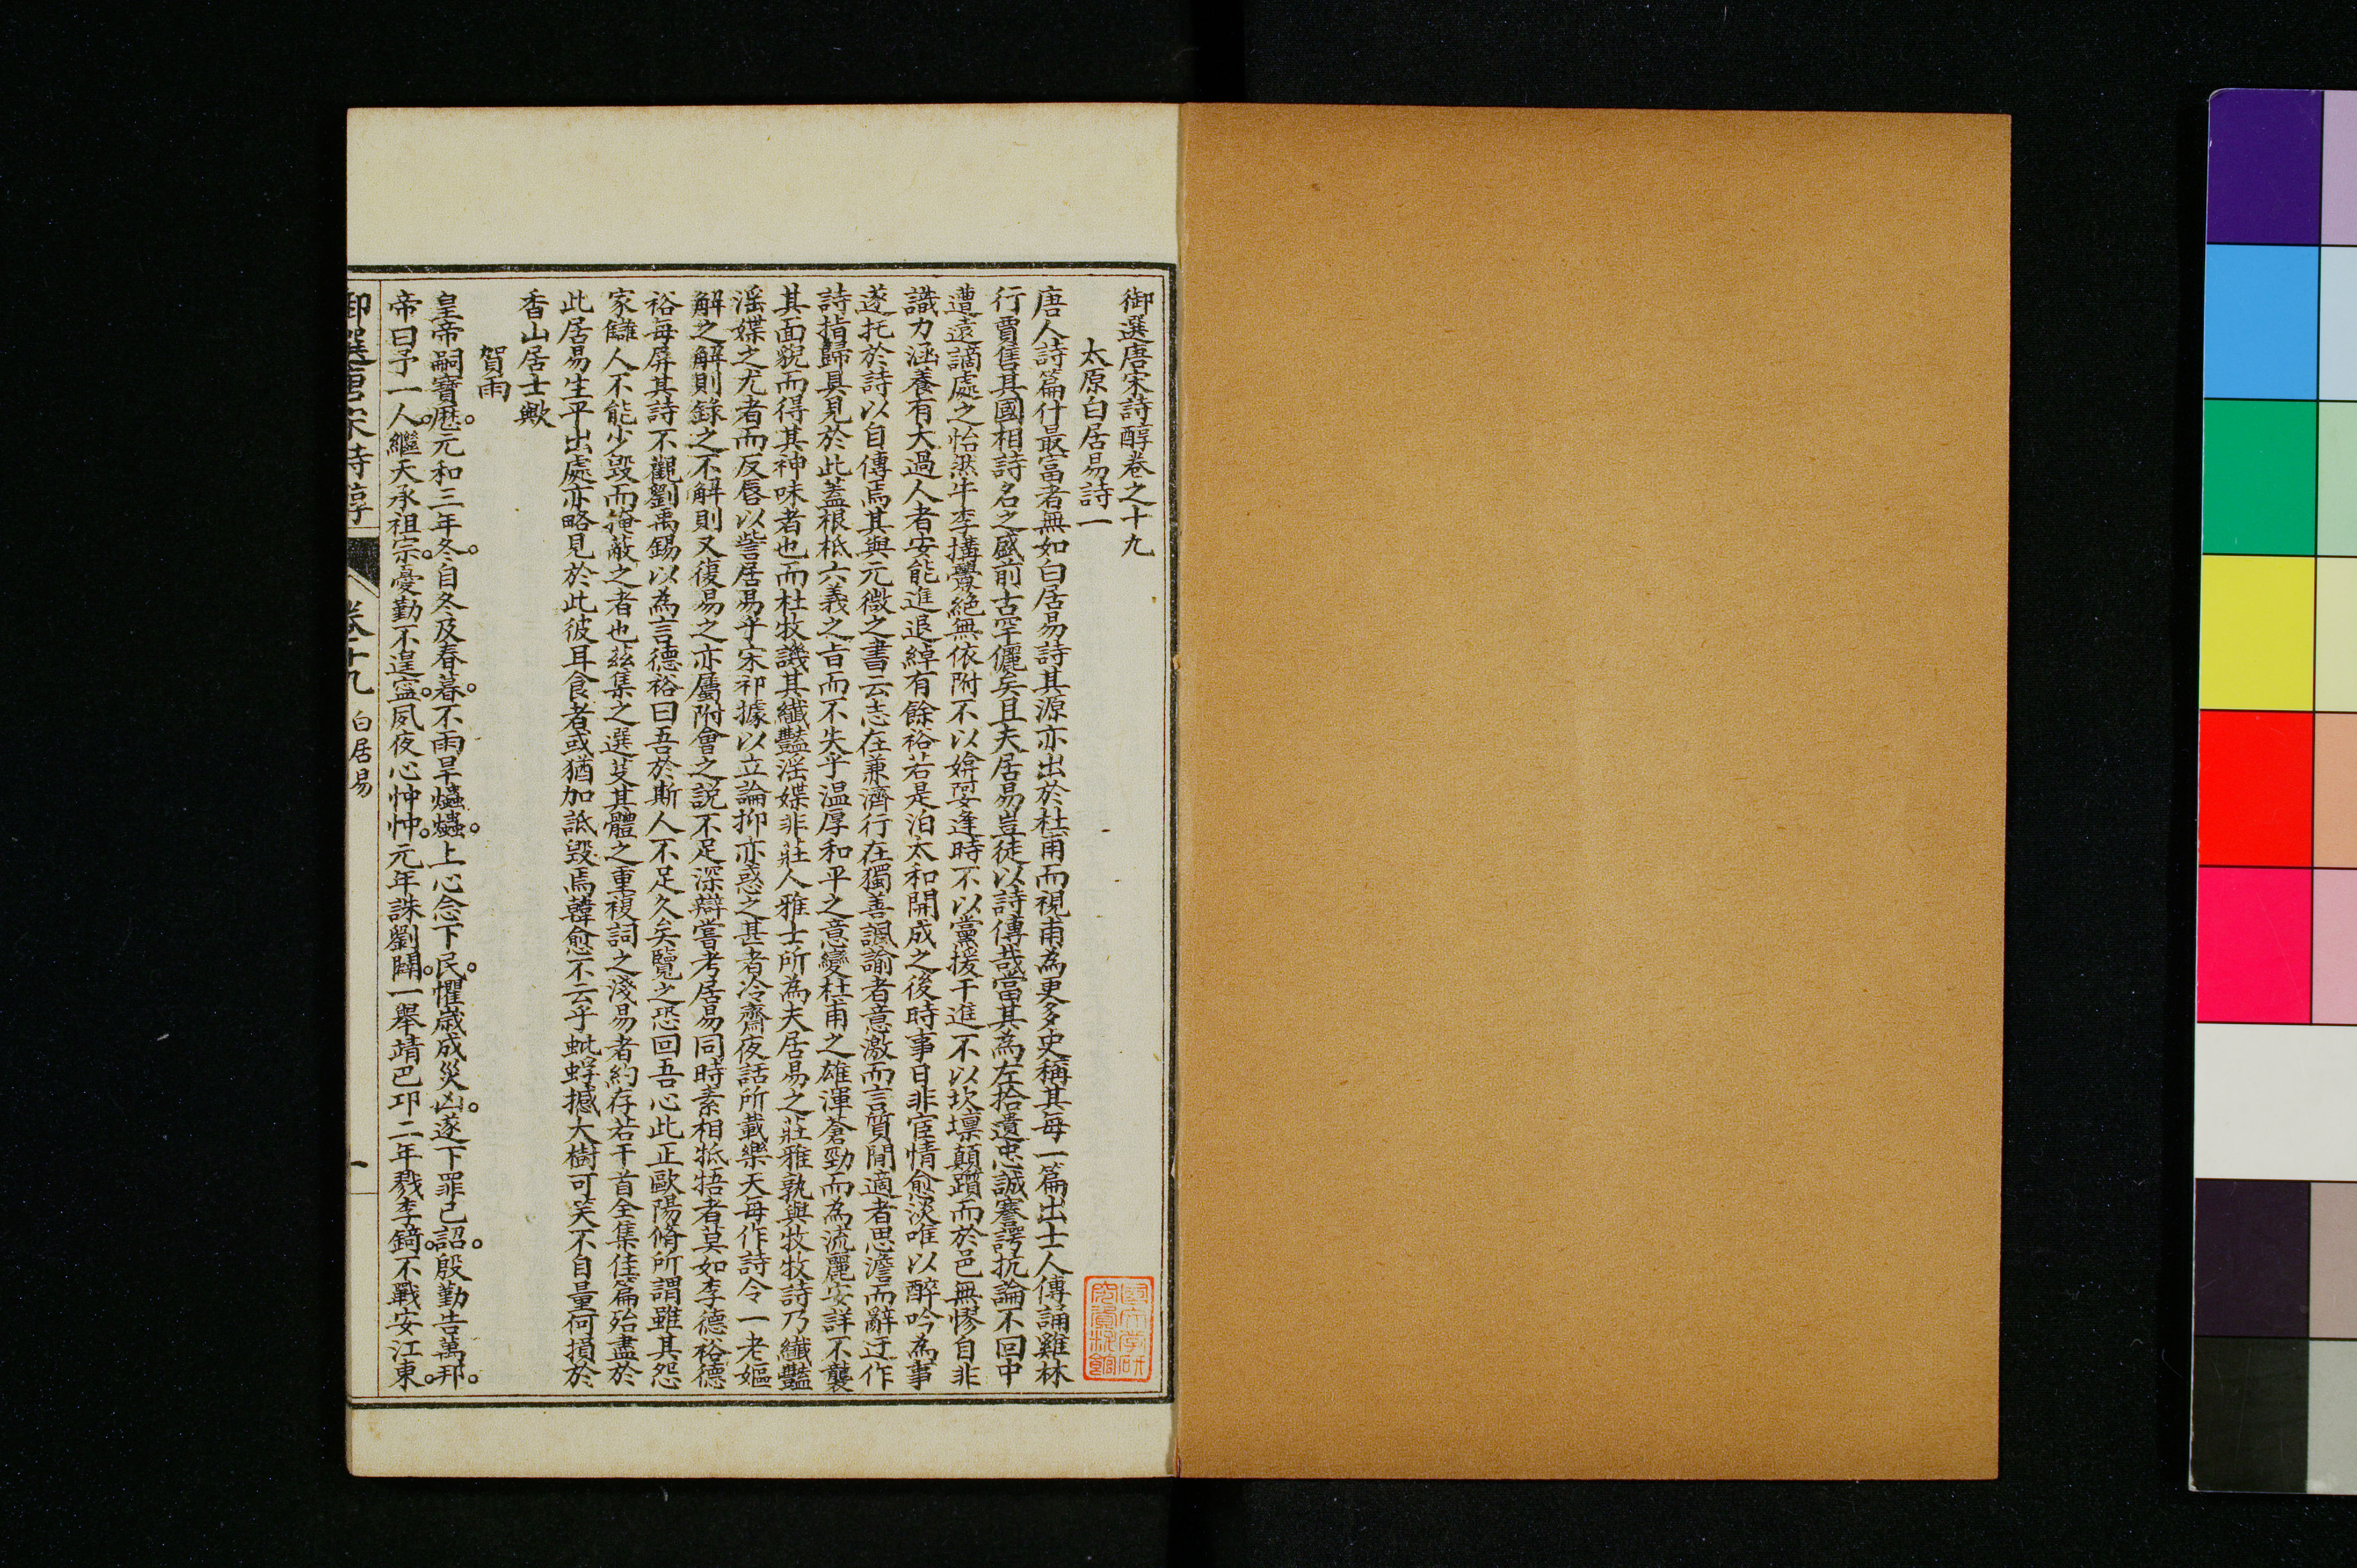 御選唐宋詩醇卷之十九
太原白居易詩一
唐人詩篇什最富者無如白居易詩其源亦出於杜甫而視甫為更多史稱其每一篇出士人傳誦雞林
行賈售其國相詩名之盛前古罕儷矣且夫居易豈徒以詩傳哉當其為左拾遺忠誠謇諤抗論不回中
遭遠謫處之怡然牛李搆釁絕無依附不以媕婀逢時不以黨援干進不以坎壈顛躓而於邑無憀自非
識力涵養有大過人者安能進退綽有餘裕若是洎太和開成之後時事日非宦情愈淡唯以醉吟為事
遂托於詩以自傳焉其與元微之書云志在兼濟行在獨善諷諭者意激而言質閒適者思澹而辭迂作
詩指歸具見於此蓋根柢六義之旨而不失乎温厚和平之意變杜甫之雄渾蒼勁而為流麗安詳不襲
其面貌而得其神味者也而杜牧譏其纖豔淫媟非莊人雅士所為夫居易之莊雅孰與牧牧詩乃纖豔
淫媟之尤者而反唇以訾居易乎宋祁據以立論抑亦惑之甚者冷齋夜話所載樂天每作詩令一老嫗
解之解則錄之不解則又復易之亦屬附會之説不足深辯嘗考居易同時素相牴牾者莫如李德裕德
裕每屏其詩不觀劉禹錫以為言德裕曰吾於斯人不足久矣覽之恐回吾心此正歐陽脩所謂雖其怨
家讎人不能少毀而掩蔽之者也茲集之選芟其體之重複詞之淺易者約存若干首全集佳篇殆盡於
此居易生平出處亦略見於此彼耳食者或猶加詆毀焉韓愈不云乎蚍蜉撼大樹可笑不自量何損於
香山居士歟
賀雨
皇帝嗣寶曆。元和三年冬。自冬及春暮。不雨旱爞爞。上心念下民。懼歲成災凶。遂下罪己詔。殷勤告萬邦。
帝曰予一人。繼天承祖宗。憂勤不遑寧。夙夜心忡忡。元年誅劉闢。一舉靖巴邛二年戮李錡。不戰安江東。
御選唐宋詩醇
卷十九
白居易
一
國文學研
究資料館